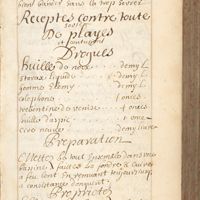 bien bander sans la trop serrer
Receptes contre toute
sorte
De playes
et contusions
Drogues
Huille de noix demy L
Storax liquide demy L
gomme Elemy demy L
colophone 1 onces
terebentine de venise onces
huille d'aspic once
cire neufve demy livre
Preparation
Mettez le tout Ensemble dans une
bassine faittes les fondre & cuire
à feu lent En remuant tousjours
a consistance d'onguent
Proprietez